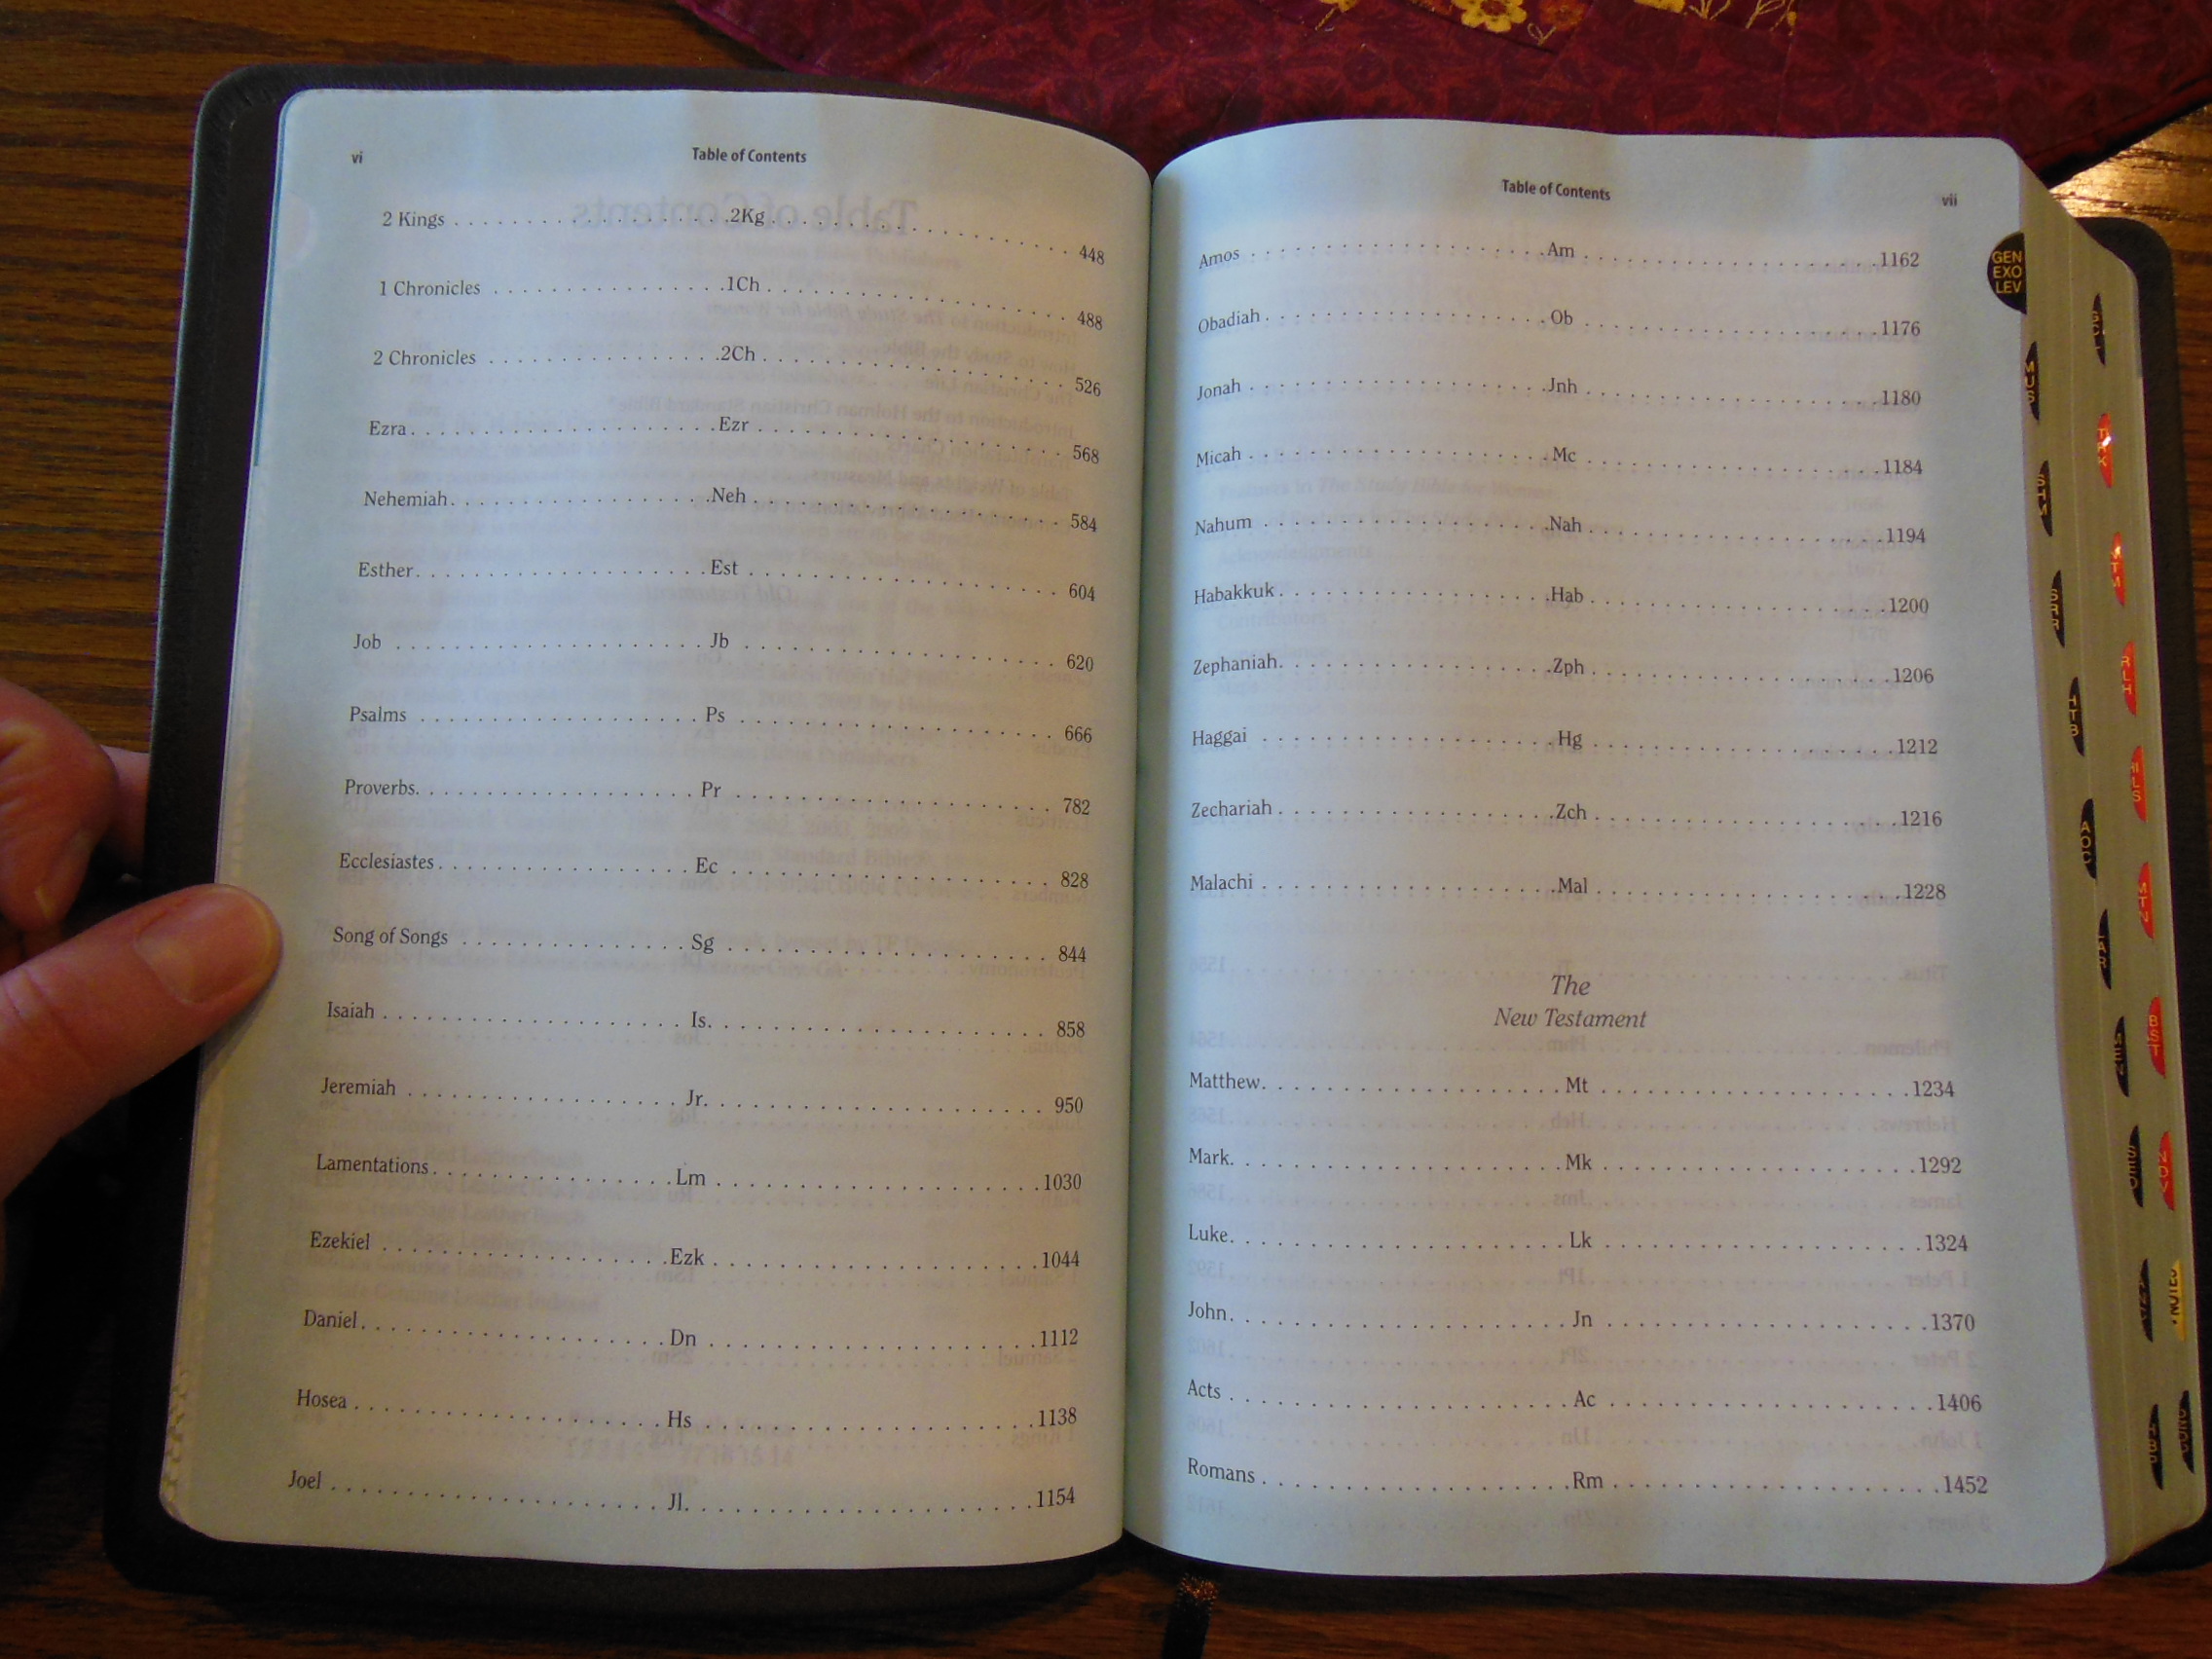 vi
Table of Contents
2 Kings . . . . . . . . . . . . . . . . . . . .2Kg . . . . . . . . . . . . . . . . . . . . . 448
1 Chronicles . . . . . . . . . . . . . . . .1Ch . . . . . . . . . . . . . . . . . . . . . 488
2 Chronicles . . . . . . . . . . . . . . . .2Ch . . . . . . . . . . . . . . . . . . . . . 526
Ezra . . . . . . . . . . . . . . . . . . . . . .Ezr . . . . . . . . . . . . . . . . . . . . . 568
Nehemiah . . . . . . . . . . . . . . . . . .Neh . . . . . . . . . . . . . . . . . . . . . 584
Esther . . . . . . . . . . . . . . . . . . . . .Est . . . . . . . . . . . . . . . . . . . . . 604
Job . . . . . . . . . . . . . . . . . . . . . . Jb . . . . . . . . . . . . . . . . . . . . . 620
Psalms . . . . . . . . . . . . . . . . . . . . Ps . . . . . . . . . . . . . . . . . . . . . 666
Proverbs . . . . . . . . . . . . . . . . . . . Pr . . . . . . . . . . . . . . . . . . . . . 782
Ecclesiastes . . . . . . . . . . . . . . . . . Ec . . . . . . . . . . . . . . . . . . . . . 828
Song of Songs . . . . . . . . . . . . . . . . Sg . . . . . . . . . . . . . . . . . . . . . 844
Isaiah . . . . . . . . . . . . . . . . . . . . . Is. . . . . . . . . . . . . . . . . . . . . . 858
Jeremiah . . . . . . . . . . . . . . . . . . . Jr. . . . . . . . . . . . . . . . . . . . . . 950
Lamentations . . . . . . . . . . . . . . . . .Lm . . . . . . . . . . . . . . . . . . . . .1030
Ezekiel . . . . . . . . . . . . . . . . . . . .Ezk . . . . . . . . . . . . . . . . . . . . .1044
Daniel . . . . . . . . . . . . . . . . . . . . . Dn . . . . . . . . . . . . . . . . . . . . .1112
Hosea . . . . . . . . . . . . . . . . . . . . . Hs . . . . . . . . . . . . . . . . . . . . .1138
Joel . . . . . . . . . . . . . . . . . . . . . . Jl. . . . . . . . . . . . . . . . . . . . . .1154
Table of Contents
vii
Amos . . . . . . . . . . . . . . . . . . . . .Am . . . . . . . . . . . . . . . . . . . . .1162
Obadiah . . . . . . . . . . . . . . . . . . . .Ob . . . . . . . . . . . . . . . . . . . . .1176
Jonah . . . . . . . . . . . . . . . . . . . . .Jnh . . . . . . . . . . . . . . . . . . . . .1180
Micah . . . . . . . . . . . . . . . . . . . . . Mc . . . . . . . . . . . . . . . . . . . . .1184
Nahum . . . . . . . . . . . . . . . . . . . . .Nah . . . . . . . . . . . . . . . . . . . . .1194
Habakkuk . . . . . . . . . . . . . . . . . . .Hab . . . . . . . . . . . . . . . . . . . . .1200
Zephaniah . . . . . . . . . . . . . . . . . . .Zph . . . . . . . . . . . . . . . . . . . . .1206
Haggai . . . . . . . . . . . . . . . . . . . . . Hg . . . . . . . . . . . . . . . . . . . . .1212
Zechariah . . . . . . . . . . . . . . . . . . .Zch . . . . . . . . . . . . . . . . . . . . .1216
Malachi . . . . . . . . . . . . . . . . . . . .Mal . . . . . . . . . . . . . . . . . . . . .1228
The
New Testament
Matthew . . . . . . . . . . . . . . . . . . . . Mt . . . . . . . . . . . . . . . . . . . . .1234
Mark . . . . . . . . . . . . . . . . . . . . . . Mk . . . . . . . . . . . . . . . . . . . . .1292
Luke . . . . . . . . . . . . . . . . . . . . . . Lk . . . . . . . . . . . . . . . . . . . . .1324
John . . . . . . . . . . . . . . . . . . . . . . Jn . . . . . . . . . . . . . . . . . . . . .1370
Acts . . . . . . . . . . . . . . . . . . . . . . Ac . . . . . . . . . . . . . . . . . . . . .1406
Romans . . . . . . . . . . . . . . . . . . . . .Rm . . . . . . . . . . . . . . . . . . . . .1452
GEN
EXO
LEV